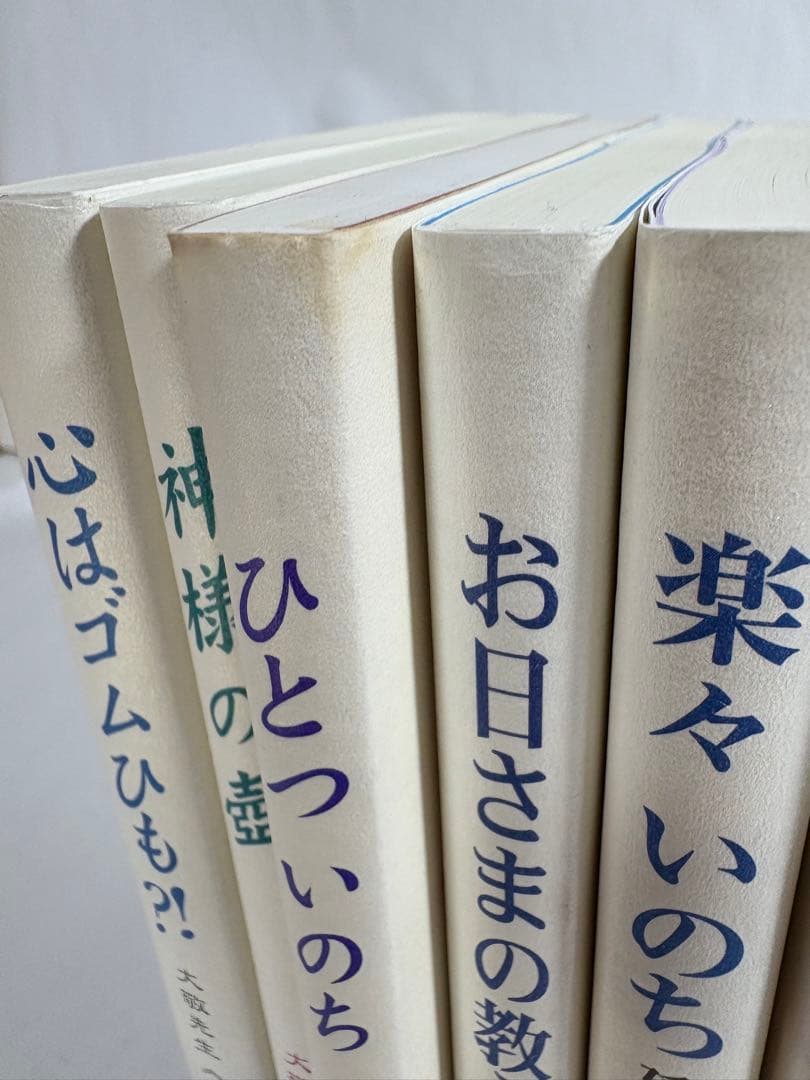 心はゴムひも?!
大敬先生
神様の壺
ひとついのち
大
お日さまの教
楽々いのち